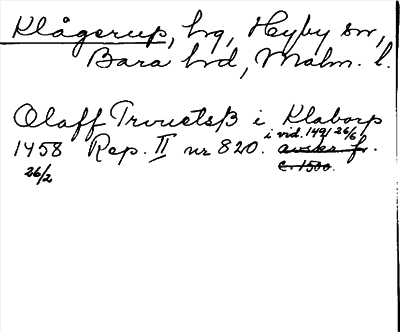 Klågerup, hg, Hyby sn,
Bara hd, Malm. l.
Olaff Trvuetsß i Klaborp
i vid. 1491 26/6
1458 Rep. II nr 820. avskr fr.
26/2 c. 1500.